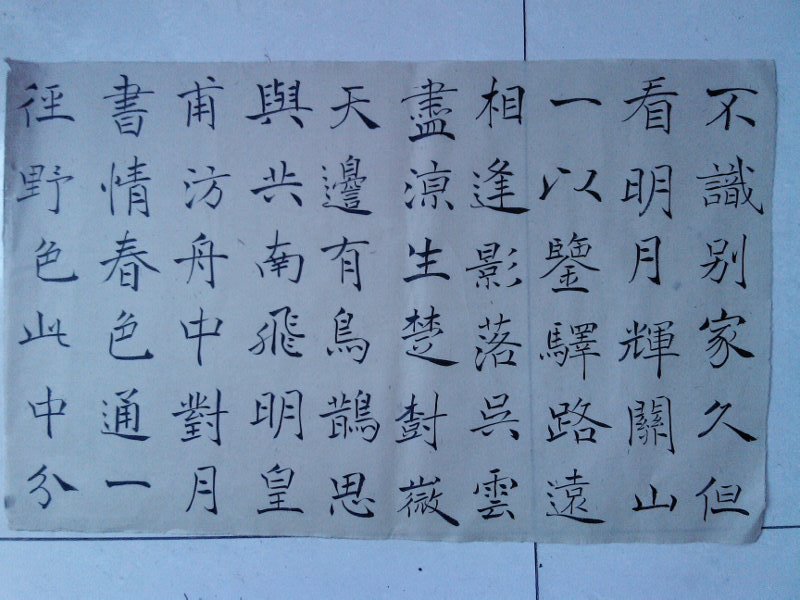 不識别家久但
看明月輝關山
一以鑒驛路遠
相逢影落呉雲
盡涼生楚樹微
天邊有鳥鵲思
與共南飛明皇
甫汸舟中對月
書情春色通一
徑野色此中分